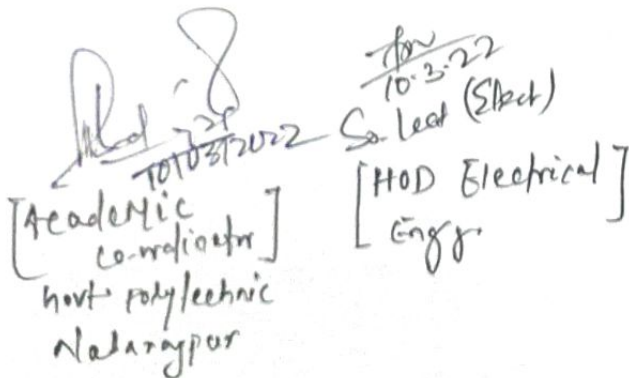 10/03/2022
[Academic
co-ordinator]
Govt polytechnic
10.3.22
Sr. Lect (Elect)
[HOD Electrical
Engg.]